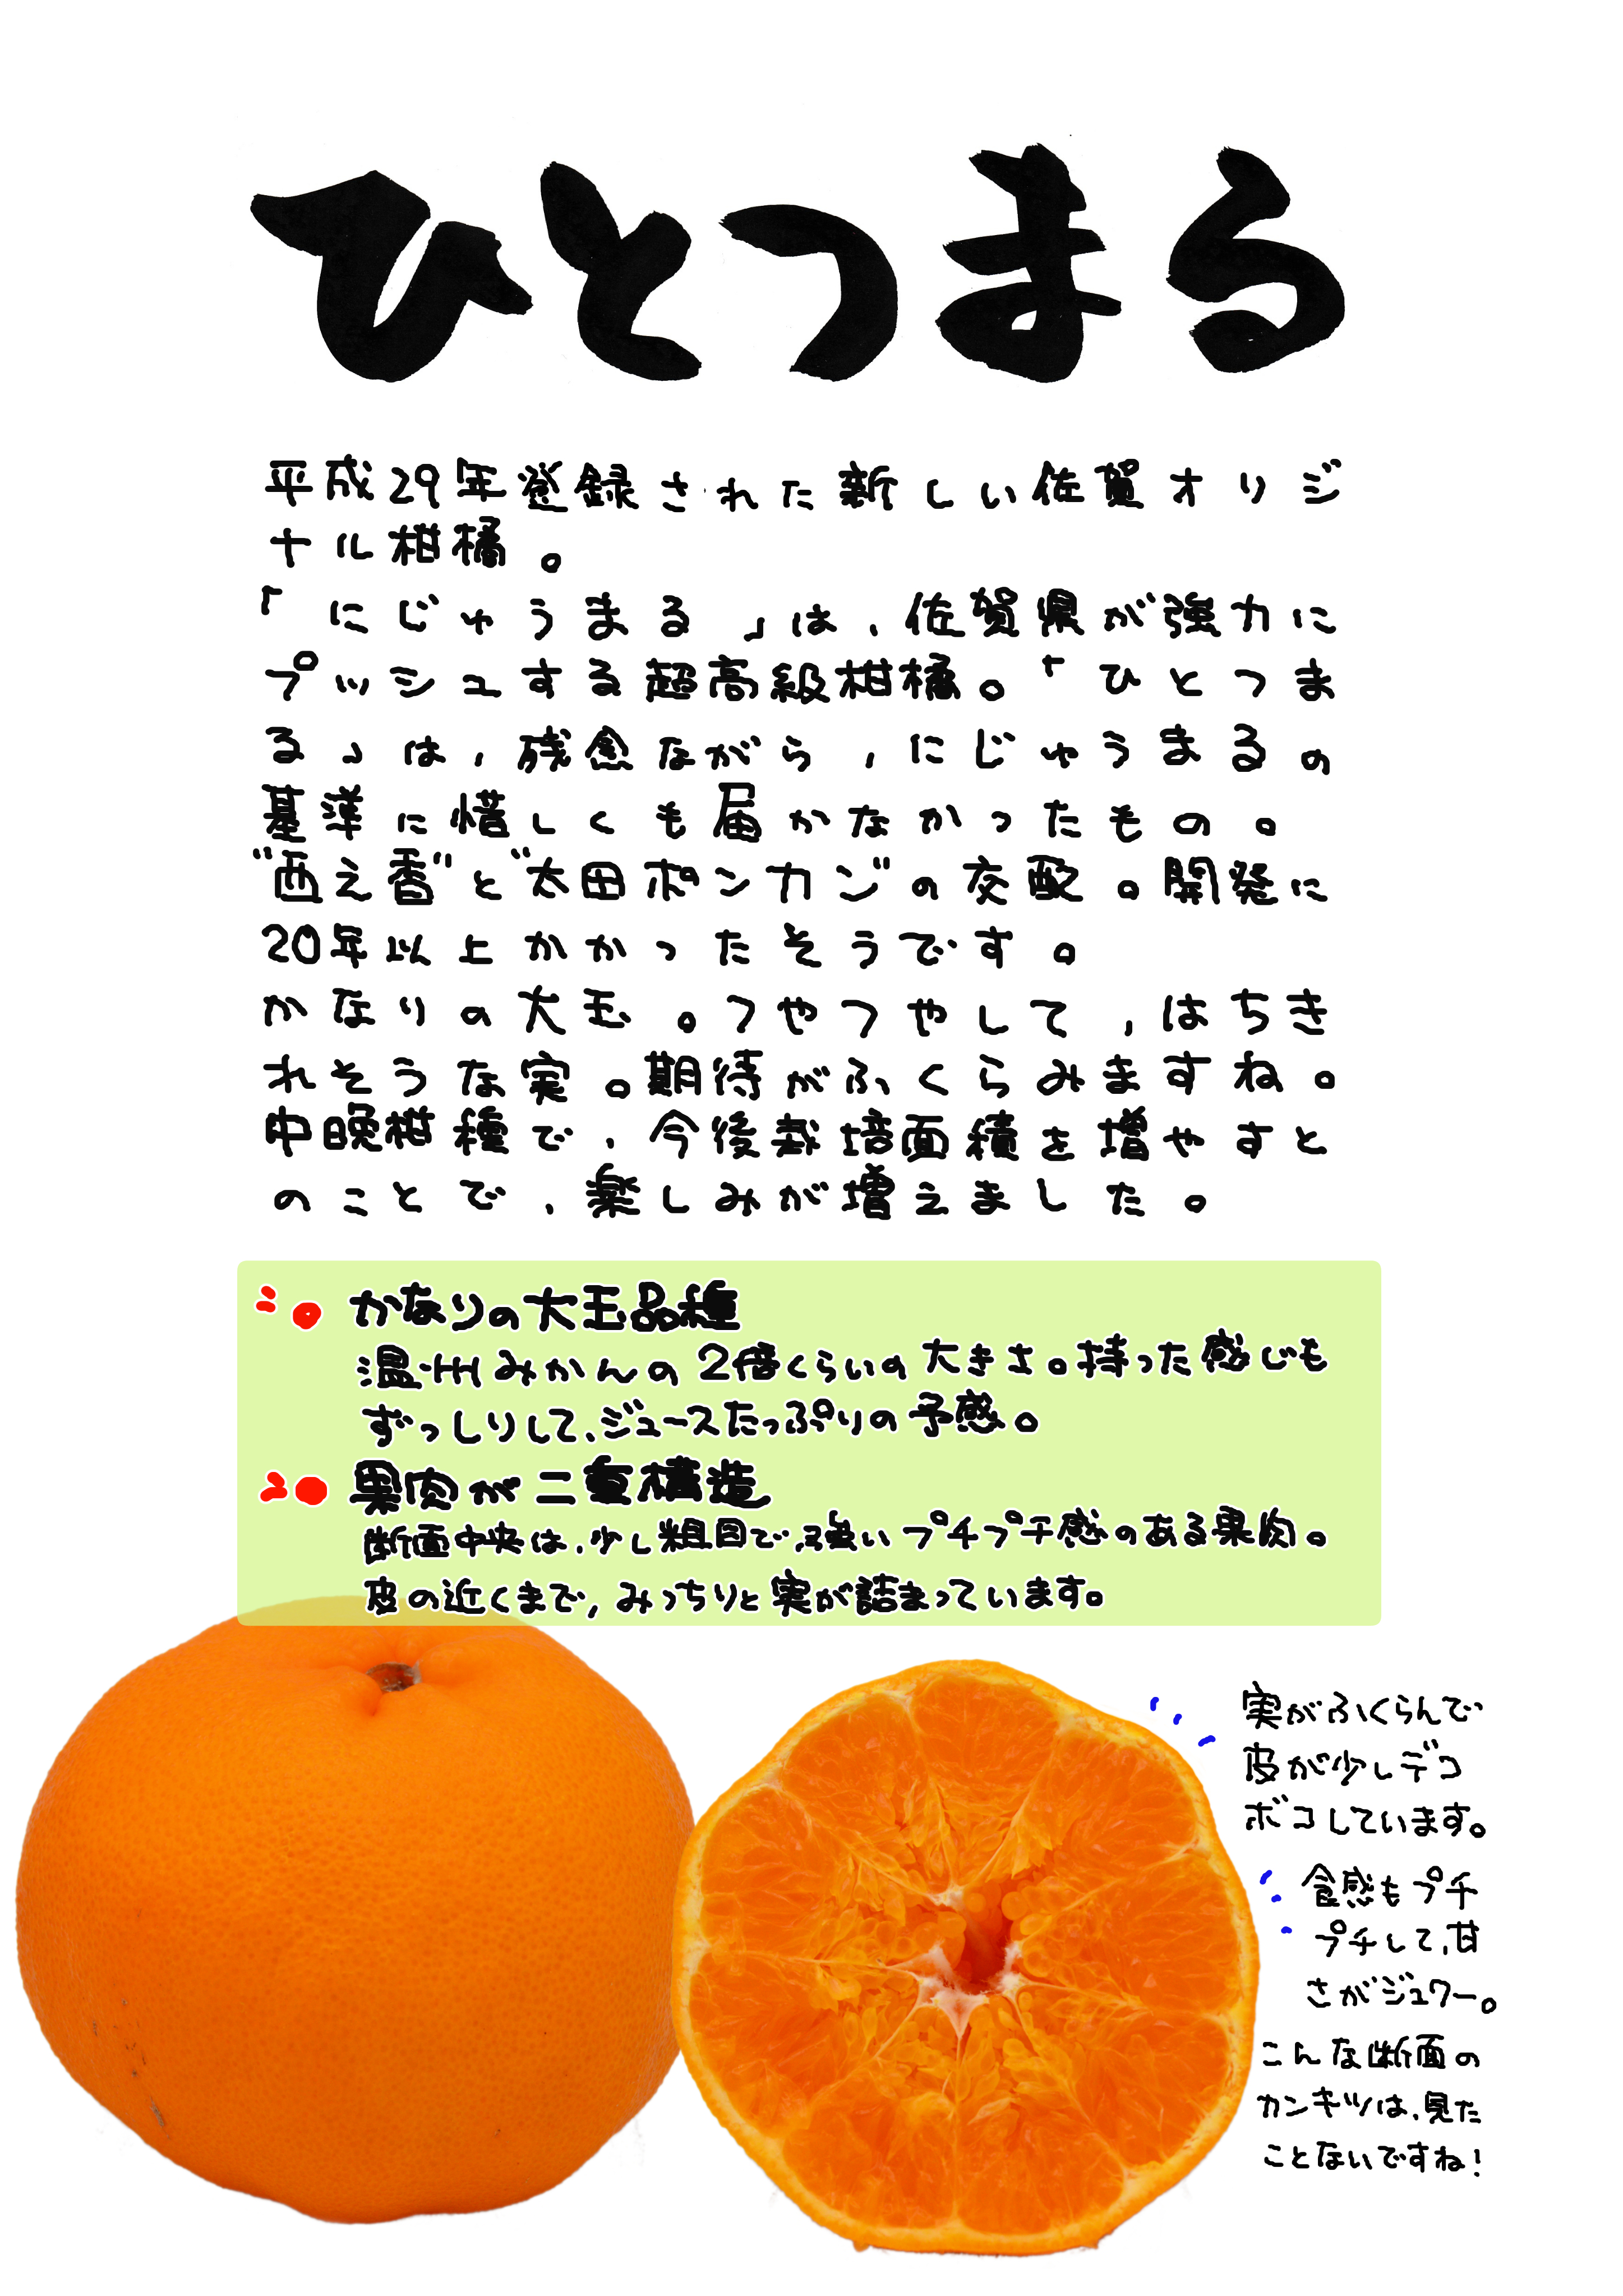 ひとつまる
平成29年登録された新しい佐賀オリジ
ナル柑橘。
「にじゅうまる」は、佐賀県が強力に
プッシュする超高級柑橘。「ひとつま
る」は、残念ながら、にじゅうまるの
基準に惜しくも届かなかったもの。
"西之香"と"太田ポンカン"の交配。開発に
20年以上かかったそうです。
かなりの大玉。つやつやして、はちき
れそうな実。期待がふくらみますね。
中晩柑種で、今後栽培面積を増やすと
のことで、楽しみが増えました。
かなりの大玉品種
温州みかんの2倍くらいの大きさ。持った感じも
ずっしりして、ジュースたっぷりの予感。
果肉が二重構造
断面中央は、少し粗目で、強いプチプチ感のある果肉。
皮の近くまで、みっちりと実が詰まっています。
実がふくらんで
皮が少しデコ
ボコしています。
食感もプチ
プチして、甘
さがジュワー。
こんな断面の
カンキツは、見た
ことないですね!